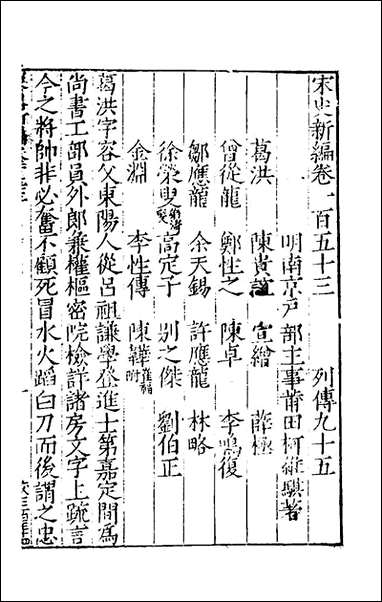 宋史新編卷一百五十三　列傳九十五
明南京戶部主事莆田柯維騏著
葛洪　陳貴誼　宣繒　薛極
曾從龍　鄭性之　陳卓　李鳴復
鄒應龍　余天錫　許應龍　林略
徐榮叟　高定子　別之傑　劉伯正
金淵　李性傳　陳韡
葛洪字容父東陽人從呂祖謙學登進士第嘉定間爲
尚書工部員外郎兼權樞密院檢詳諸房文字上疏言
今之將帥非必奮不顧死冒水火蹈白刃而後謂之忠